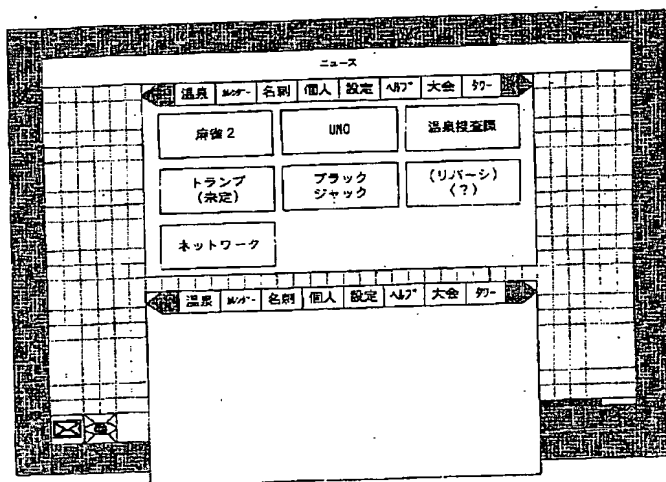 ニュース
温泉 カレンダー 名刺 個人 設定 ヘルプ 大会 タワー
麻雀2
UNO
温泉捜査隊
トランプ
(未定)
ブラック
ジャック
(リバーシ)
(?)
ネットワーク
温泉 カレンダー 名刺 個人 設定 ヘルプ 大会 タワー